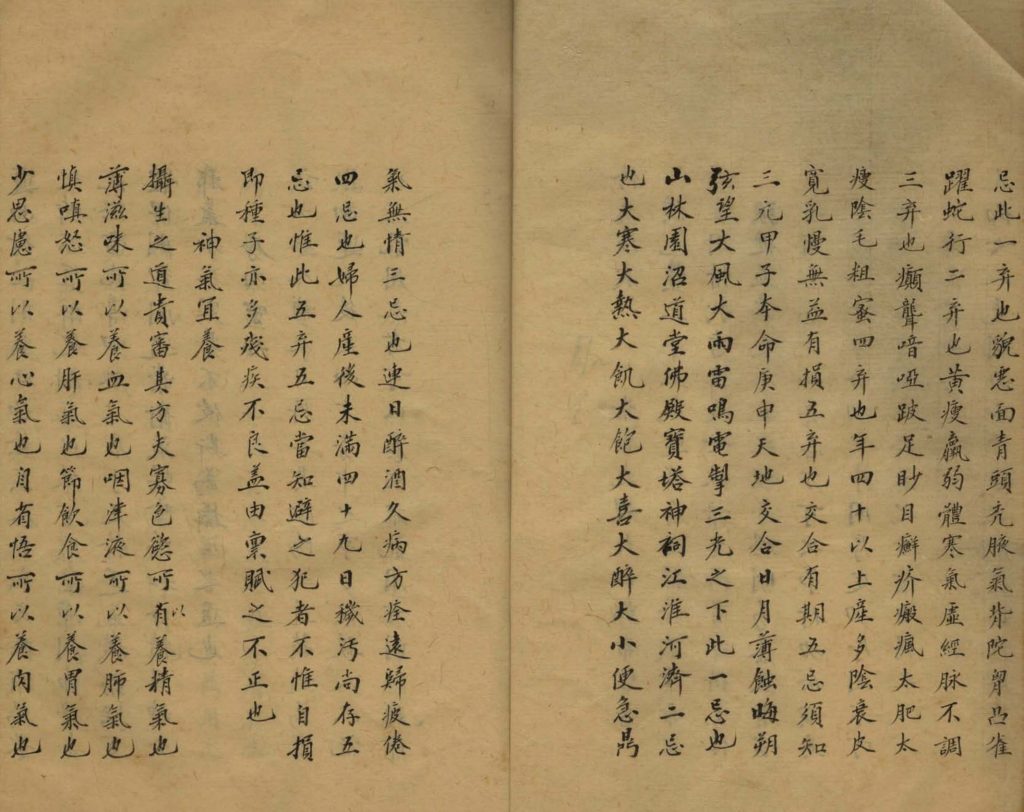 忌此一弃也貌悪面青頭禿腋氣背陀胷凸雀
躍蛇行二弃也黄瘦羸弱體寒氣虛經脉不調
三弃也癲聾喑啞跛足眇目癬疥瘢瘋太肥太
瘦陰毛粗宻四弃也年四十以上産多陰衰皮
寛乳慢無益有損五弃也交合有期五忌須知
三元甲子本命庚申天地交合日月薄蝕晦朔
弦望大風大雨雷鳴電掣三光之下此一忌也
山林園沼道堂佛殿寶塔神祠江淮河濟二忌
也大寒大熱大飢大飽大喜大醉大小便急
氣無情三忌也連日醉酒久病方痊遠歸疲倦
四忌也婦人産後未滿四十九日穢汚尚存五
忌也惟此五弃五忌當知避之犯者不惟自損
即種子亦多殘疾不良盖由禀賦之不正也
神氣宜養
攝生之道貴審其方夫寡色慾可有以養精氣也
薄滋味可以養血氣也咽津液可以養肺氣也
慎嗔怒可以養肝氣也節飲食可以養胃氣也
少思慮可以養心氣也自省悟可以養内氣也